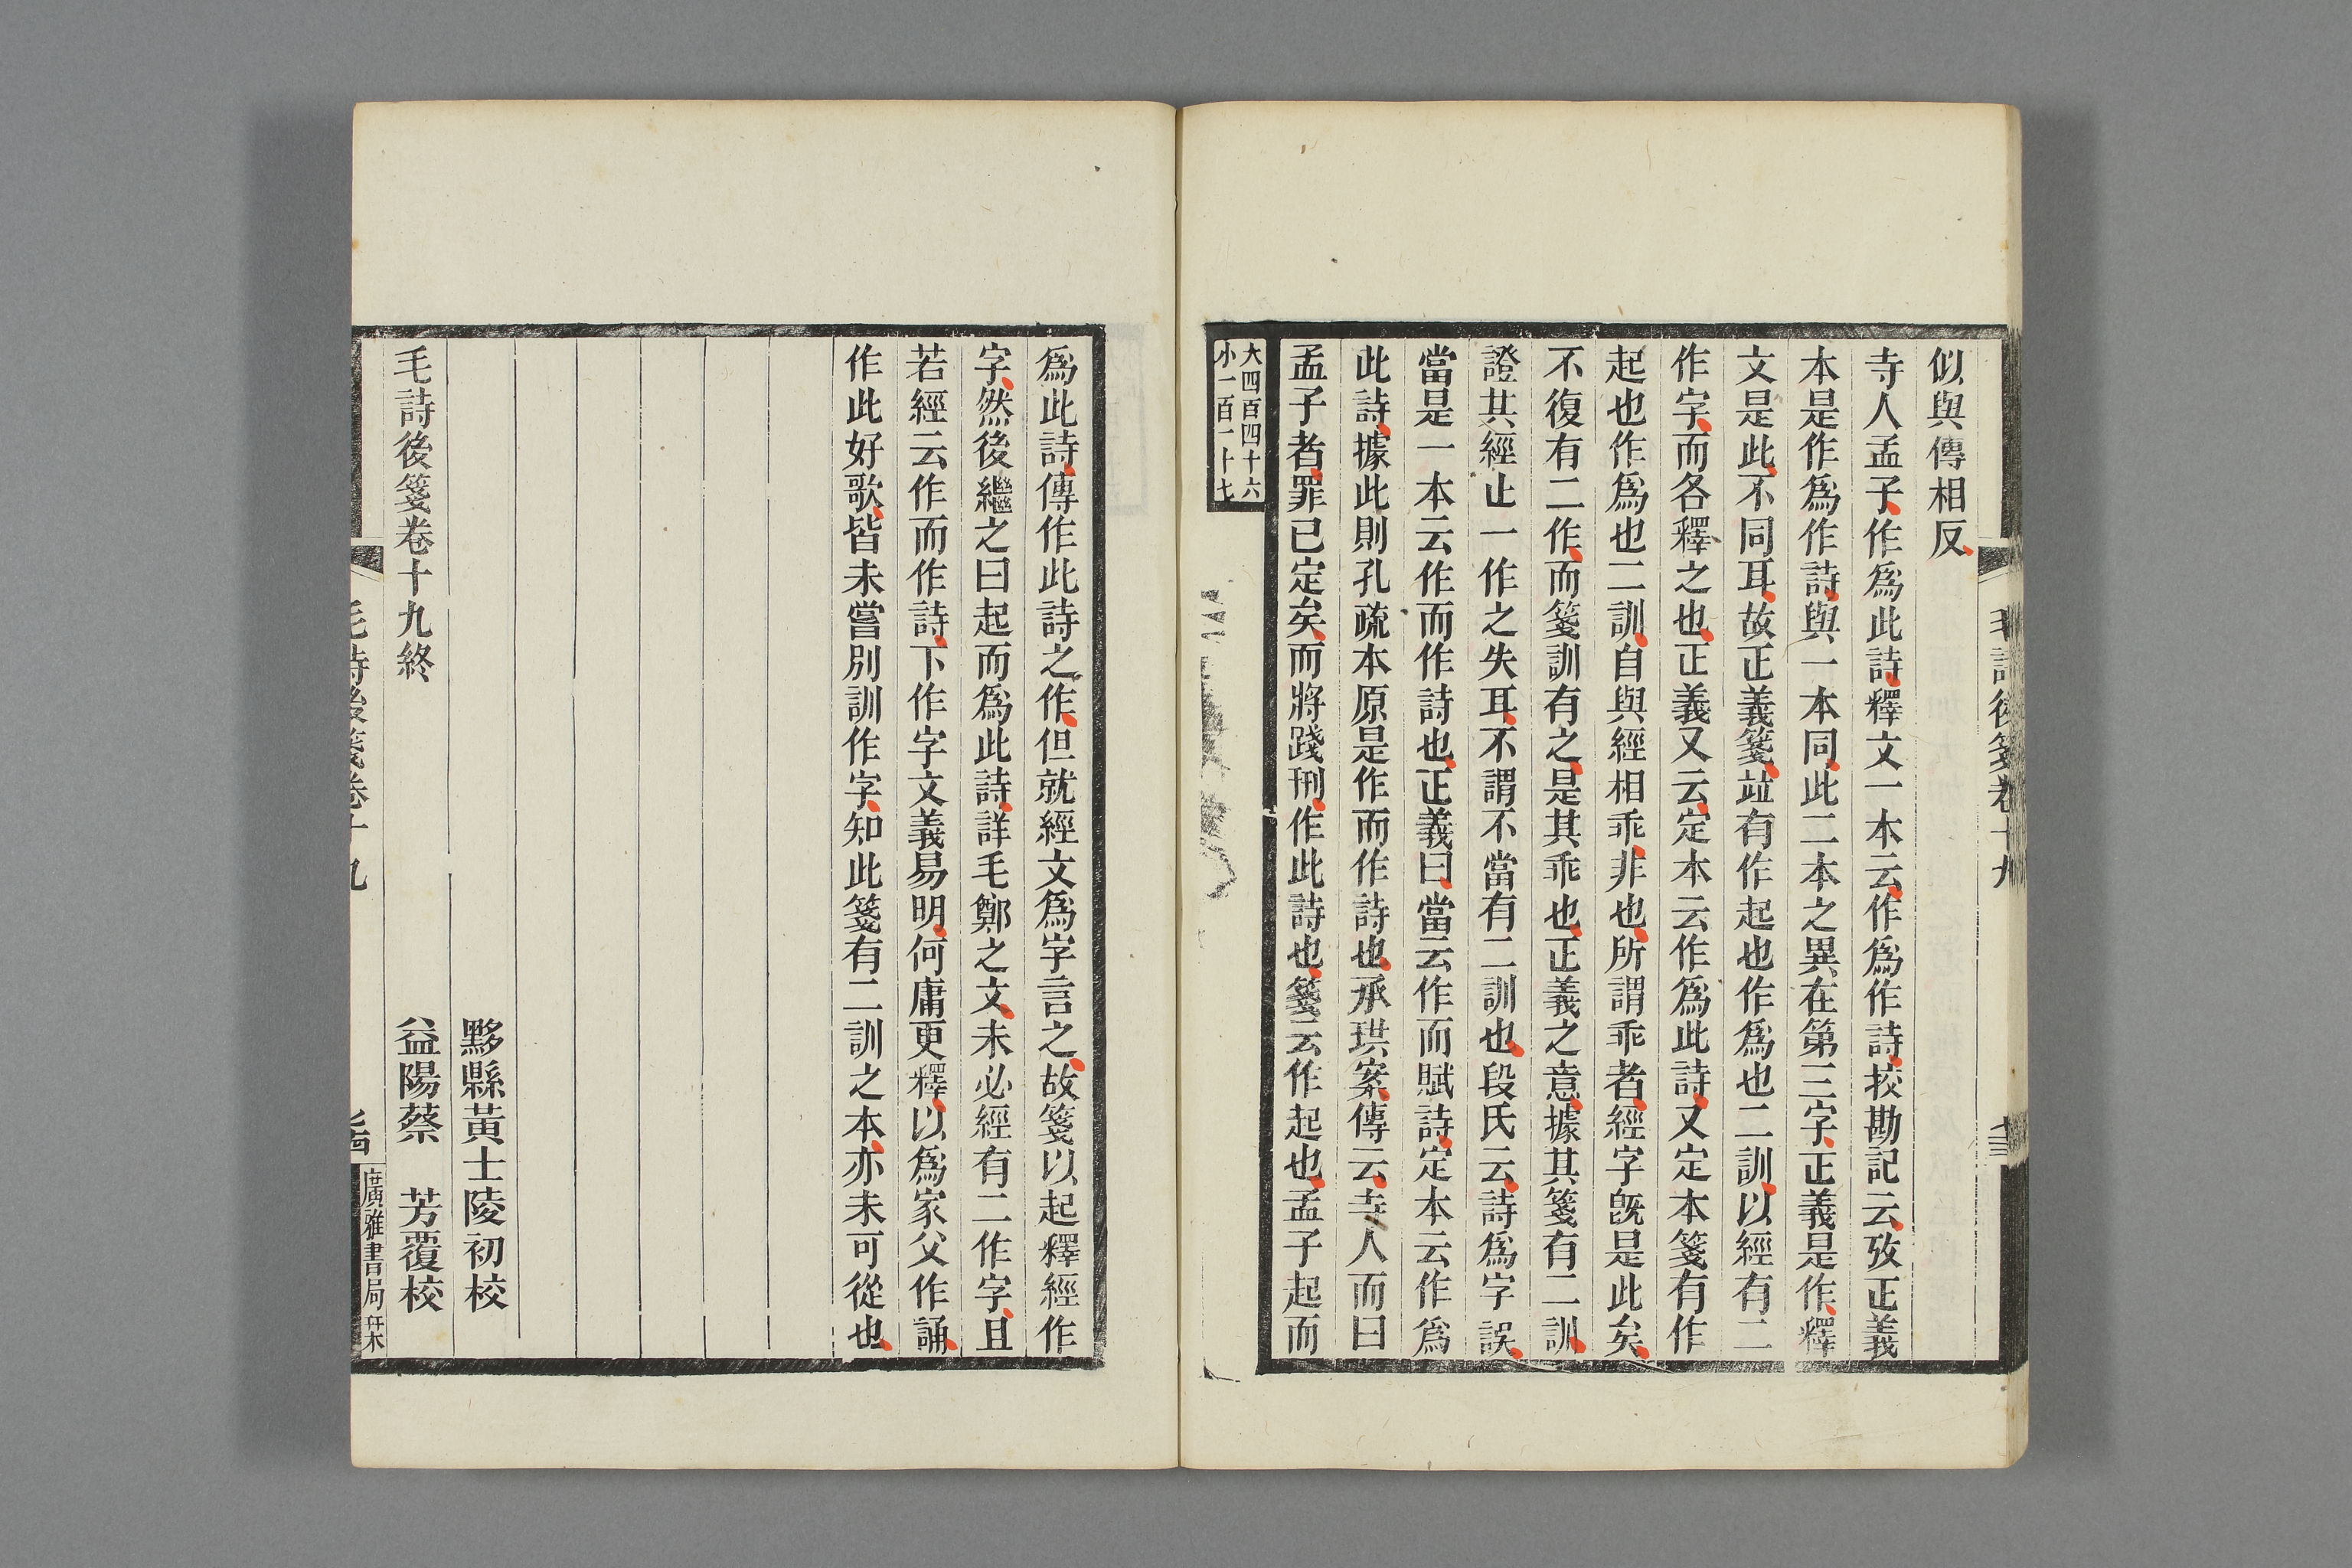 似與傳相反
寺人孟子作爲此詩釋文一本云作爲作詩挍勘記云攷正義
本是作爲作詩與一本同此二本之異在第三字正義是作釋
文是此不同耳故正義箋竝有作起也作爲也二訓以經有二
作字而各釋之也正義又云定本云作爲此詩又定本箋有作
起也作爲也二訓自與經相乖非也所謂乖者經字旣是此矣
不復有二作而箋訓有之是其乖也正義之意據其箋有二訓
證其經止一作之失耳不謂不當有二訓也段氏云詩爲字誤
當是一本云作而作詩也正義曰當云作而賦詩定本云作爲
此詩據此則孔疏本原是作而作詩也承珙案傳云寺人而曰
孟子者罪已定矣而將踐刑作此詩也箋云作起也孟子起而
大四百四十六
小一百一十七
爲此詩傳作此詩之作但就經文爲字言之故箋以起釋經作
字然後繼之曰起而爲此詩詳毛鄭之文未必經有二作字且
若經云作而作詩下作字文義易明何庸更釋以爲家父作誦
作此好歌皆未嘗別訓作字知此箋有二訓之本亦未可從也
黟縣黃士陵初校
毛詩後箋卷十九終
益陽蔡　芳覆校
毛詩後箋卷十九
廣雅書局栞